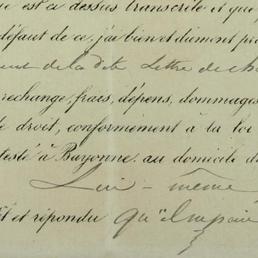 ue est ci dessus transcrite et que
défaut de ce, j'ai bien et dument pro
ent de la dite Lettre de cha
rechange, frais, dépens, dommages
de droit, conformément à la loi
testé à Bayonne, au domicile d
Lui-même
et répondu qu'il